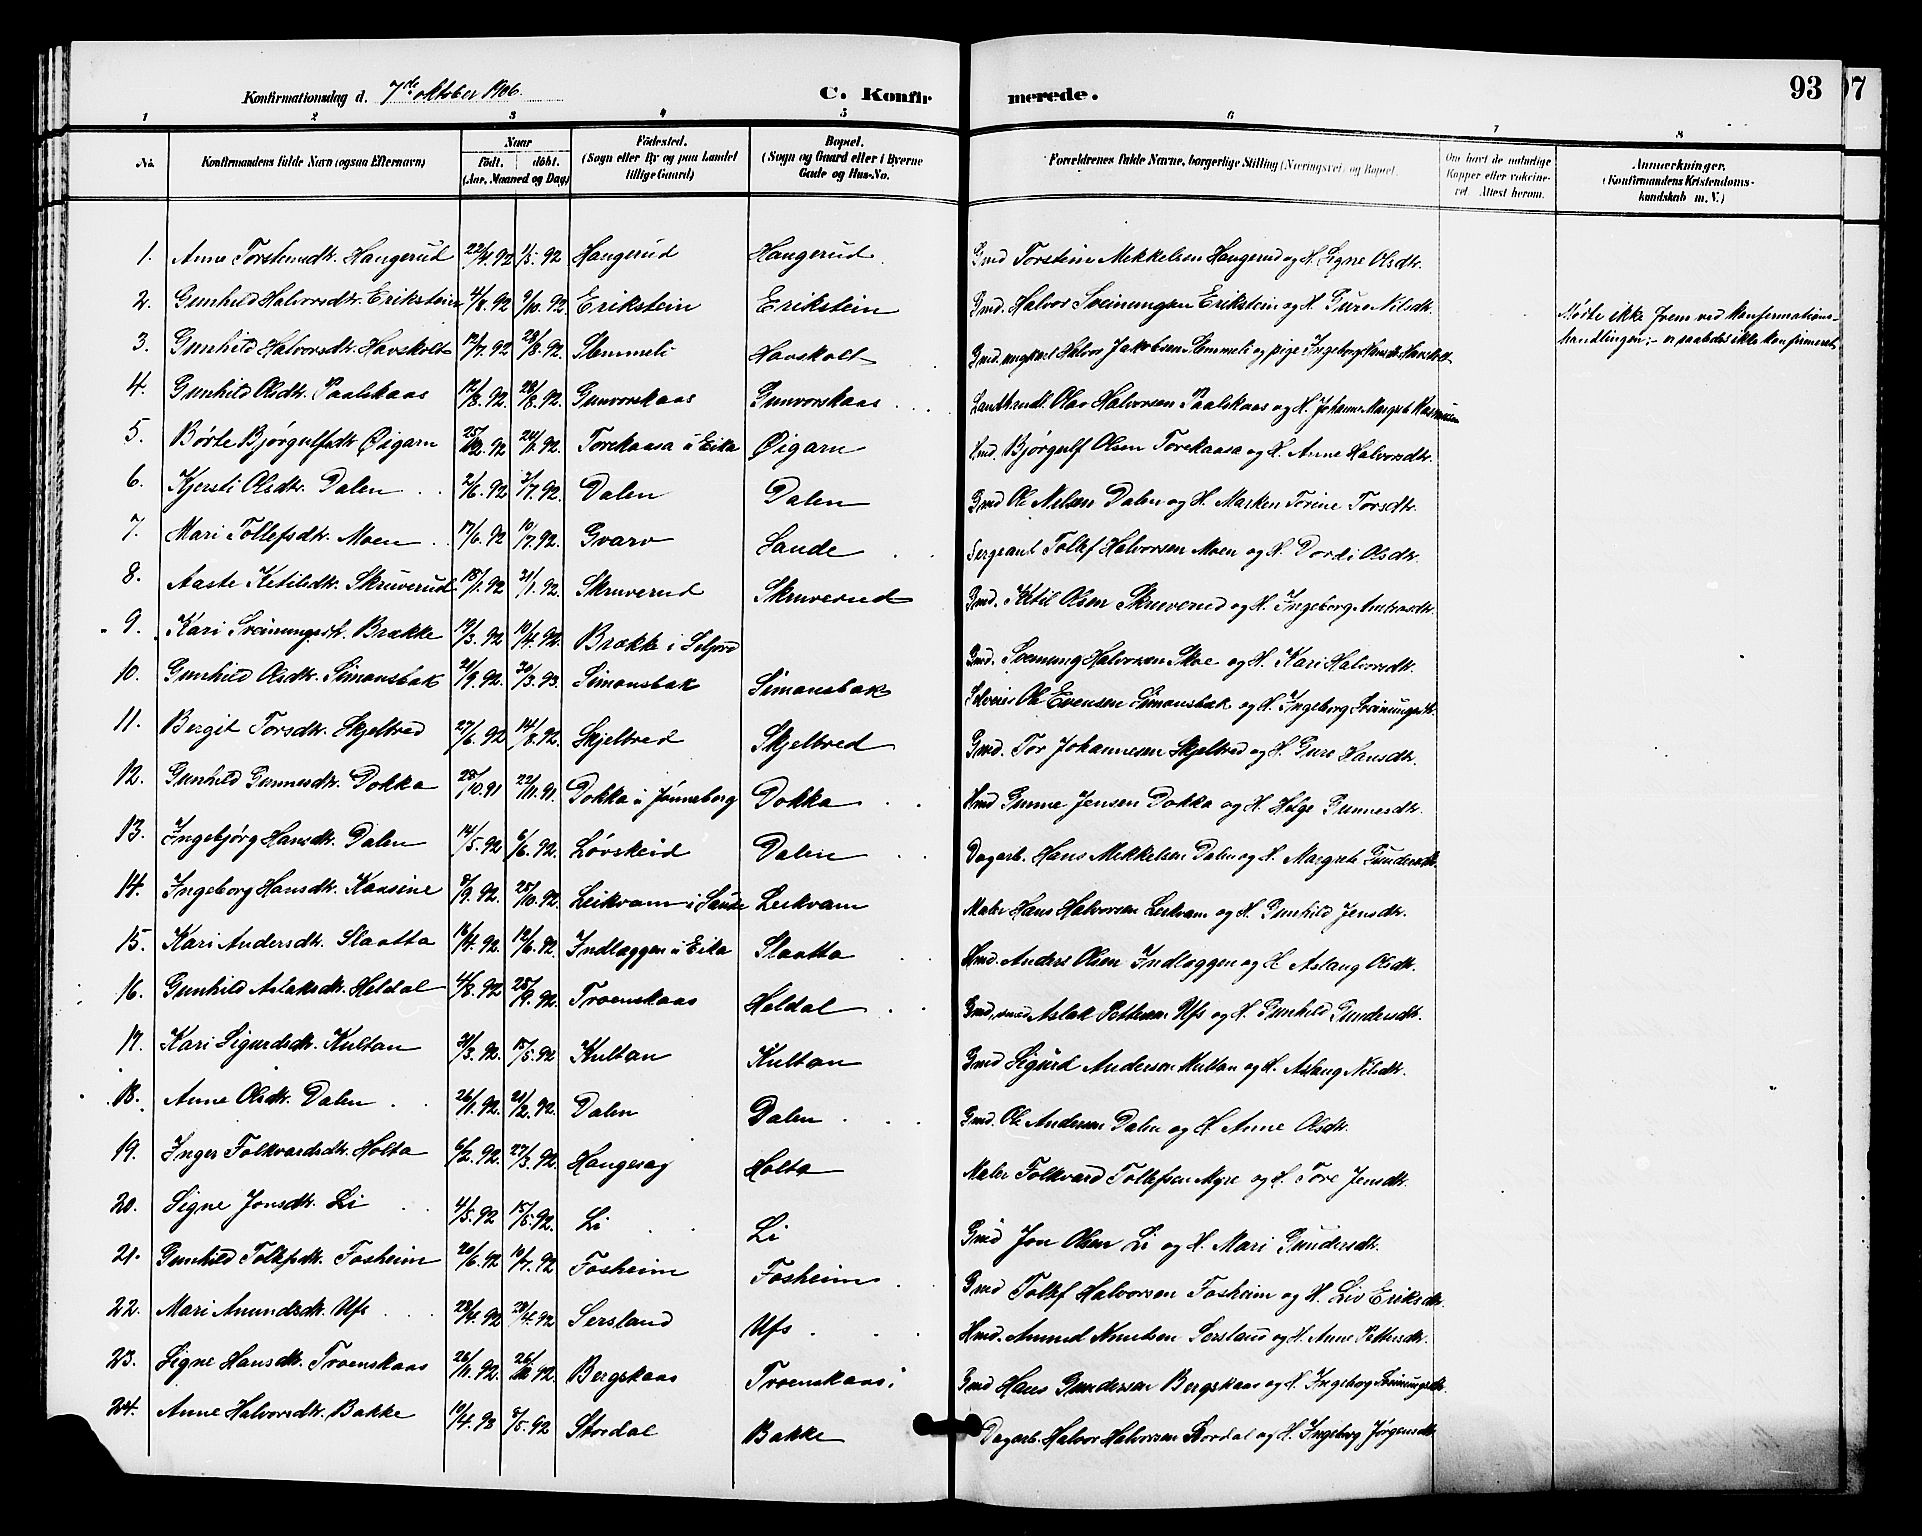 Konfirmationsdag d. 7de oktober 1906. C. Konfirmerede. 93 97
1 2 3 4 5 6 7 8
No. Konfirmandens fulde Navn (ogsaa Efternavn) Naar født. døbt. (Aar, Maaned og Dag) Födested. (Sogn eller By og paa Landet tillige Gaard) Bopæl. (Sogn og Gaard eller i Byerne Gade og Hus-No. Forældrenes fulde Navne, borgerlige Stilling (Næringsvei) og Bopæl. Om havt de naturlige Kopper eller vakcineret. Attest herom. Anmærkninger. (Konfirmandens Kristendomskundskab m. V.)
1. Anne Torsteinsdtr. Haugerud 22/4.92 1/5.92 Haugerud Haugerud Gmd Torstein Mekkelsen Haugerud og H. Signe Olsdtr.
2. Gunhild Halvorsdtr. Erikstein 4/8.92 9/10.92 Erikstein Erikstein Gmd. Halvor Sveinungsen Erikstein og H. Guro Nilsdtr. Mødte ikke frem ved konfirmationshandlingen; er saaledes ikke konfirmeret
3. Gunhild Halvorsdtr. Havskolt 12/7.92 28/8.92 Slemmeli Havskolt Gmd. ungkarl Halvor Jakobsen Slemmeli og pige Ingeborg Havskolt
4. Gunhild Olsdtr. Paalskaas 12/8.92 28/8.92 Gunvorskaas Gunvorskaas Landhandl. Olav Halvorsen Paalskaas og H. Johanne Margret
5. Børte Bjørgulfsdtr. Øigarn 92 92 Torekaasa i Eika Øigarn Hmd. Bjørgulf Olsen Torekaasa og H. Anne Halvorsdtr.
6. Kjersti Olsdtr. Dalen 2/6.92 3/7.92 Dalen Dalen Gmd Ole Nilsen Dalen og H. Masken Torine Torsdtr.
7. Mari Tollefsdtr. Moen 17/6.92 10/7.92 Gvarv Saude Sergeant Tollef Halvorsen Moen og H. Dordi Olsdtr.
8. Aaste Ketilsdtr. Skruverud 18/1.92 31/1.92 Skruverud Skruverud Gmd. Ketil Olsen Skruverud og H. Ingeborg
9. Kari Sveinungsdtr. Brække 19/3.92 10/4.92 Brække i Seljord Gmd. Sveinung Halvorsen Moe og H. Kari Halvorsdtr.
10. Gunhild Olsdtr. Simonsbak 21/9.92. 30/3.93. Simonsbak Simonsbak Selveier Ole Evensen Simonsbak og H. Ingeborg Sveinungsdtr.
11. Bergit Torsdtr. Skjelbred 27/6.92 14/8.92 Skjelbred Skjelbred Gmd. Tor Johannesen Skjelbred og H. Guro Hansdtr.
12. Gunhild Gunnesdtr. Dokka 25/10.91 22/11.91. Dokka i Jønneborg Dokka Hmd Gunne Jensen Dokka og H. Helge Gunnesdtr.
13. Ingebjørg Hansdtr. Dalen 14/5.92 6/6.92. Løvskeid Dalen Dagarb. Hans Mekkelsen Dalen og H. Margrete Gundersdtr.
14. Ingeborg Hansdtr. Kaasine 8/9.92. 25/10.92. Leikvam i Saude Leikvam Maler Hans Halvorsen Leikvam og H. Gunhild Jensdtr.
15. Kari Andersdtr. Slaatta 16/4.92. 19/6.92 Indlæggen i Eika Slaatta Hmd. Anders Olsen Indlæggen og H Aslaug Olsdtr.
16. Gunhild Aslaksdtr. Heldal 4/8.92 25/9.92. Troenskaas Heldal Gmd, smed Aslak Pettersen Ufs og H. Gunhild Gundersdtr.
17. Kari Sigurdsdtr. Kultan 31/3.92. 15/5.92 Kultan Kultan Gmd Sigurd Andersen Kultan og H. Aslaug Nilsdtr.
18. Anne Olsdtr. Dalen 26/1.92. 21/2.92 Dalen Dalen Gmd. Ole Andersen Dalen og H Anne Olsdtr.
19. Inger Folkvardsdtr. Holta 6/2.92. 27/3.92 Haugesag Holta Maler Folkvard Tollefsen Myre og H. Tore Jensdtr.
20. Signe Jonsdtr. Li 4/5.92 15/5.92. Li Li Gmd Jon Olsen Li og H. Mari Gundersdtr.
21. Gunhild Tollefsdtr. Fosheim 20/6.92 10/7.92 Fosheim Fosheim Gmd Tollef Halvorsen Fosheim og H. Liv Eriksdtr.
22. Mari Amundsdtr. Ufs 92 28/4.92 Sersland Ufs Hmd. Amund Knutsen Sersland og H. Anne Pettersdtr.
23. Signe Hansdtr. Troenskaas 26/11.92. 26/12.92. Bergskaas Troenskaas Gmd Hans Gundersen Bergskaas og H. Ingeborg Sveinungsdtr.
24. Anne Halvorsdtr. Bakke 10/4.92 8/5.92 Stordal Bakke Dagarb. Halvor Halvorsen Stordal og H. Ingeborg Jørgensdtr.